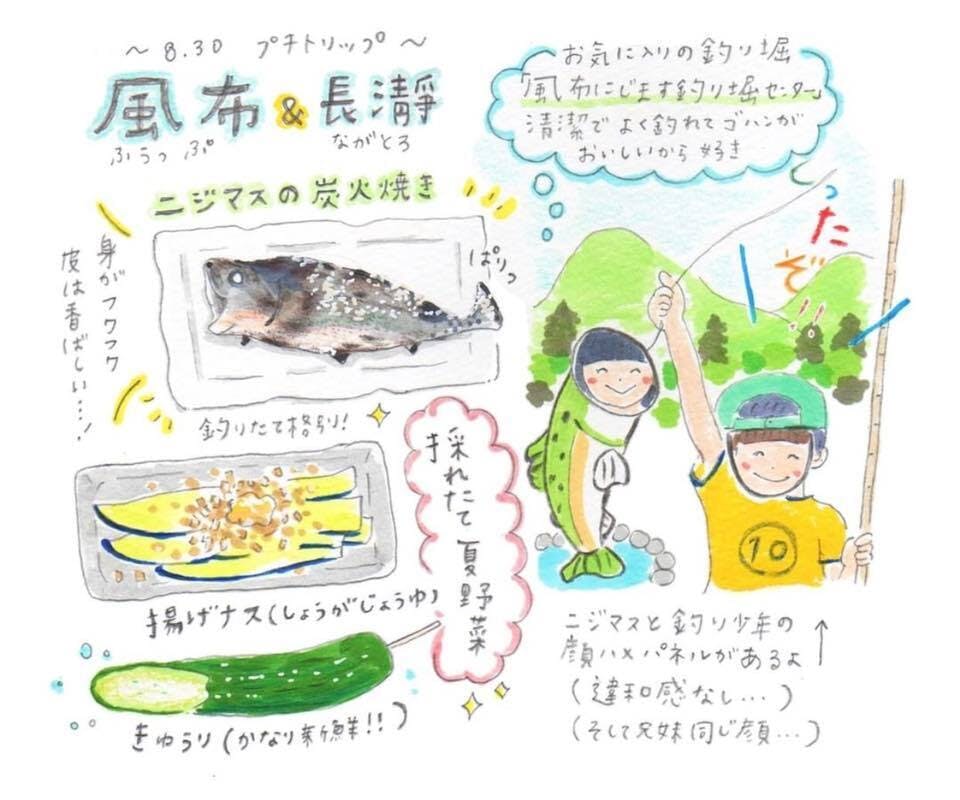 〜 8.30 プチトリップ 〜
風布 & 長瀞
ふうっぷ ながとろ
ニジマスの炭火焼き
身がフワフワ
皮は香ばしい…!
ぱりっ
釣りたて格別!
採れたて夏野菜
揚げナス(しょうがじょうゆ)
きゅうり(かなり新鮮!!)
お気に入りの釣り堀
「風布にじます釣り堀センター」
清潔でよく釣れてゴハンが
おいしいから好き
とったぞ!!
10
ニジマスと釣り少年の
顔ハメパネルがあるよ
(違和感なし…)
(そして兄妹同じ顔…)